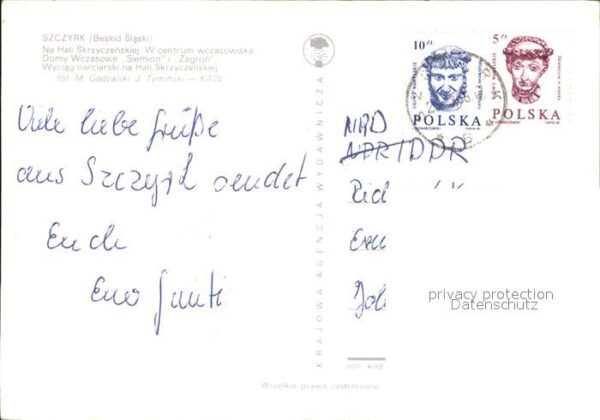 SZCZYRK /Beskid Śląski/
Na Hali Skrzyczeńskiej. W centrum wczasowiska
Domy Wczasowe „Siemion" i „Zagroń"
Wyciąg narciarski na Hali Skrzyczeńskiej
fot. M. Gadzalski J. Tymiński – KAW
KRAJOWA AGENCJA WYDAWNICZA
10 zł
POLSKA
5 zł
POLSKA
Viele liebe Grüße
aus Szczyrk sendet
Euch
NRD
DDR
privacy protection
Datenschutz
ozn. kod
Wszelkie prawa zastrzeżone